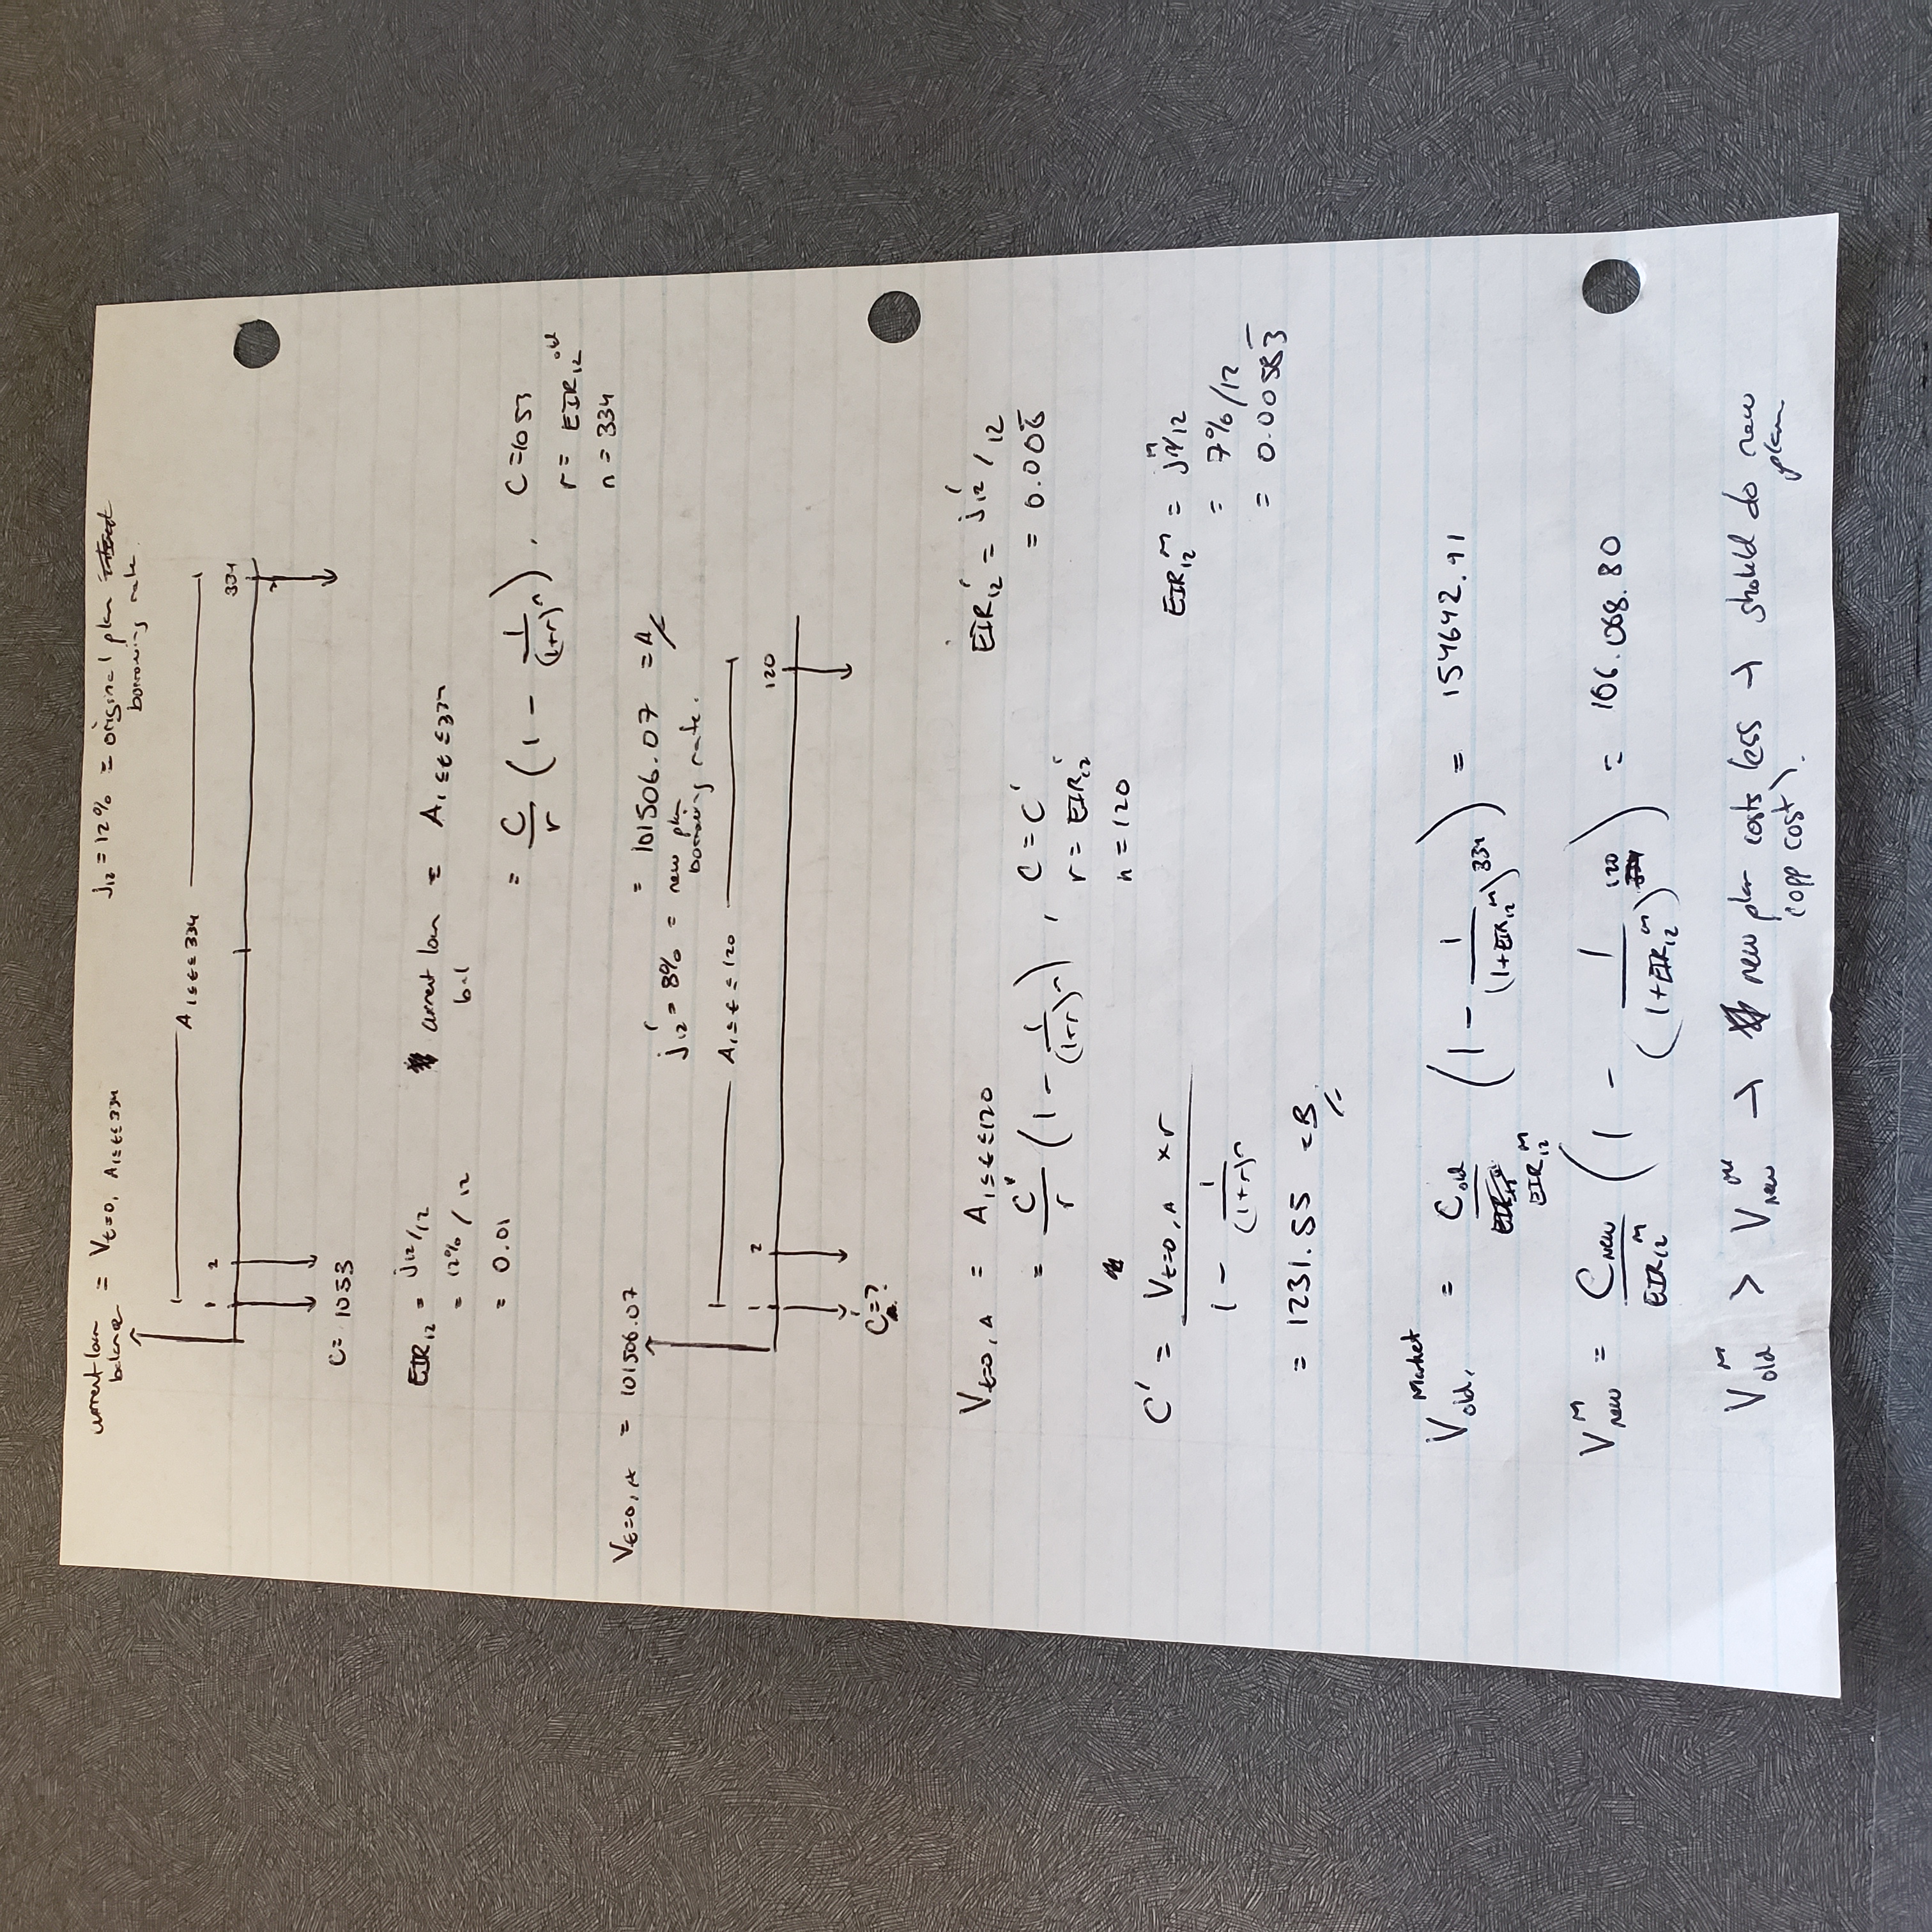 current loan balance = V t=0, A 1≤t≤334
j12 = 12% = original plan borrowing rate.
A 1≤t≤334
1 2 334
C = 1053
EIR12 = j12/12
= 12% / 12
= 0.01
current loan bal = A 1≤t≤334
= C/r (1 - 1/(1+r)^n), C = 1053
r = EIR12^old
n = 334
= 101506.07 = A
V t=0, A = 101506.07
j12' = 8% = new plan borrowing rate.
A 1≤t≤120
1 2 120
C' = ?
V t=0, A = A 1≤t≤120
= C'/r (1 - 1/(1+r)^n), C = C'
r = EIR12'
n = 120
EIR12' = j12' / 12
= 0.006̅
C' = V t=0, A × r / (1 - 1/(1+r)^n)
= 1231.55 = B
EIR12^M = j^M/12
= 7%/12
= 0.00583̅
V old, Market = C old / EIR12^M (1 - 1/(1+EIR12^M)^334) = 154642.91
V new^M = C new / EIR12^M (1 - 1/(1+EIR12^M)^120) = 106.068.80
V old^M > V new^M → new plan costs less → should do new plan
(opp cost).